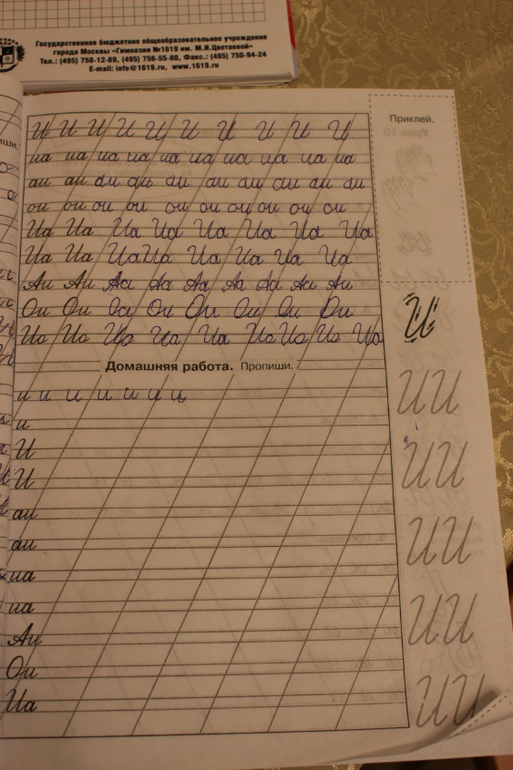 Государственное бюджетное общеобразовательное учреждение
города Москвы «Гимназия №1619 им. М.И.Цветаевой»
Тел.: (495) 758-12-89, (495) 756-55-80, Факс.: (495) 750-94-24
E-mail: info@1619.ru, www.1619.ru
Приклей.
И И И И И И И И И И
иа иа иа иа иа иа иа иа иа иа
аи аи аи аи аи аи аи аи аи аи
ои ои ои ои ои ои ои ои ои ои
Иа Иа Иа Иа Иа Иа Иа Иа
Иа Иа Иа Иа Иа Иа Иа Иа
Аи Аи Аи Аи Аи Аи Аи Аи Аи
Ои Ои Ои Ои Ои Ои Ои Ои
Ио Ио Ио Ио Ио Ио Ио Ио Ио
И
Домашняя работа. Пропиши.
и и и и и и и и
и
И
И
аи
аи
иа
иа
Аи
Ои
Иа
И И
И И
И И
И И
И И